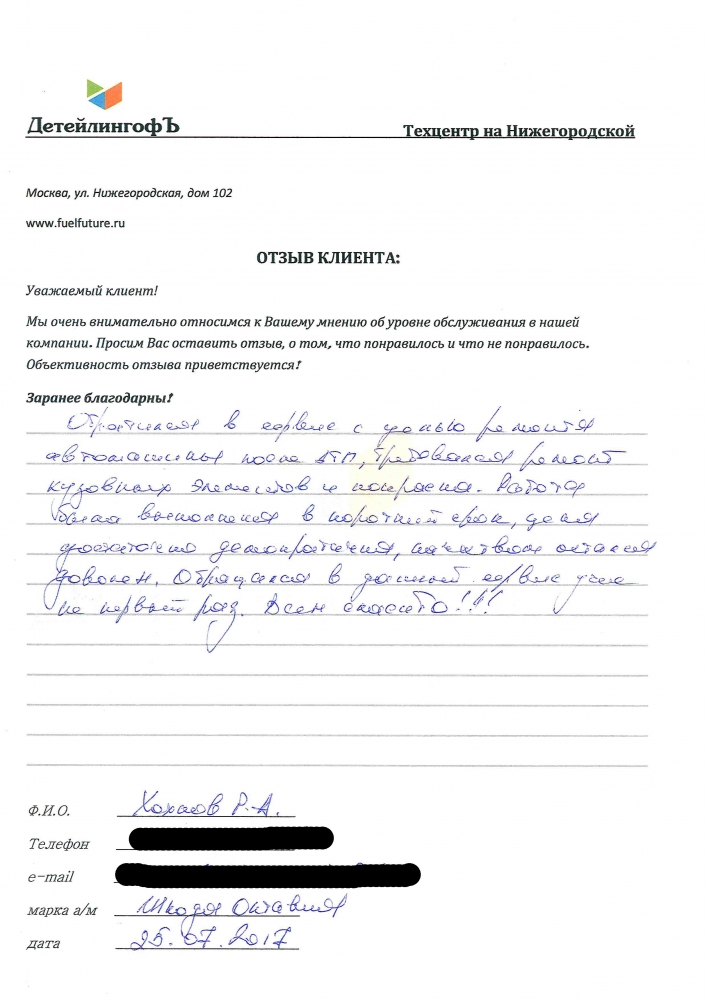 ДетейлингофЪ
Техцентр на Нижегородской
Москва, ул. Нижегородская, дом 102
www.fuelfuture.ru
ОТЗЫВ КЛИЕНТА:
Уважаемый клиент!
Мы очень внимательно относимся к Вашему мнению об уровне обслуживания в нашей
компании. Просим Вас оставить отзыв, о том, что понравилось и что не понравилось.
Объективность отзыва приветствуется!
Заранее благодарны!
Обратился в сервис с целью ремонта
автомашины после ДТП, требовался ремонт
кузовных элементов и покраска. Работа
была выполнена в короткий срок, цена
достаточно демократичная, качеством остался
доволен. Обращался в данный сервис уже
не первый раз. Всем спасибо!!!
Ф.И.О. Хохлов Р.А.
Телефон
e-mail
марка а/м Шкода Октавия
дата 25.07.2017